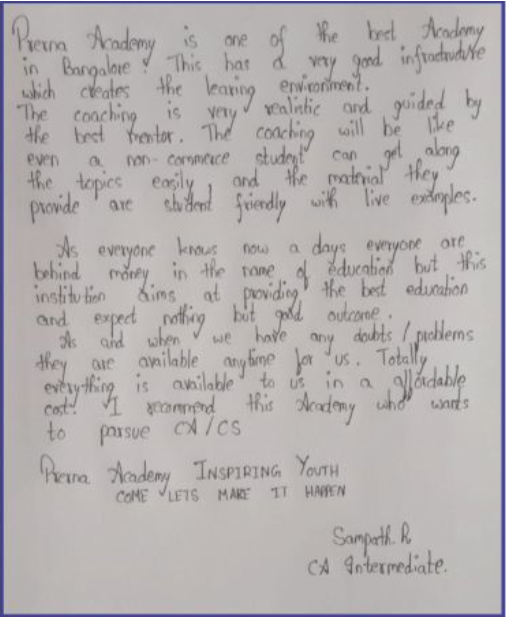 Prerna Academy is one of the best Academy
in Bangalore. This has a very good infrastructure
which creates the learing environment.
The coaching is very realistic and guided by
the best mentor. The coaching will be like
even a non-commerce student can get along
the topics easily, and the material they
provide are student friendly with live examples.
As everyone knows now a days everyone are
behind money in the name of education but this
institution aims at providing the best education
and expect nothing but good outcome.
As and when we have any doubts / problems
they are available anytime for us. Totally
everything is available to us in a affordable
cost. I recommend this Academy who wants
to parsue CA/CS
Prerna Academy INSPIRING YOUTH
COME LETS MAKE IT HAPPEN
Sampath. R
CA Intermediate.